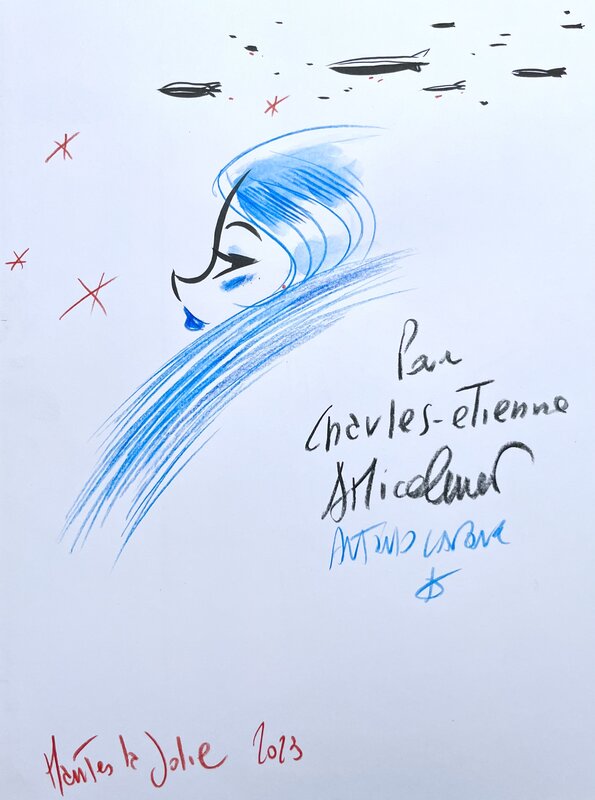 Charles-etienne
AMicalement
ANTONIO LAPONE
Mantes la Jolie 2023